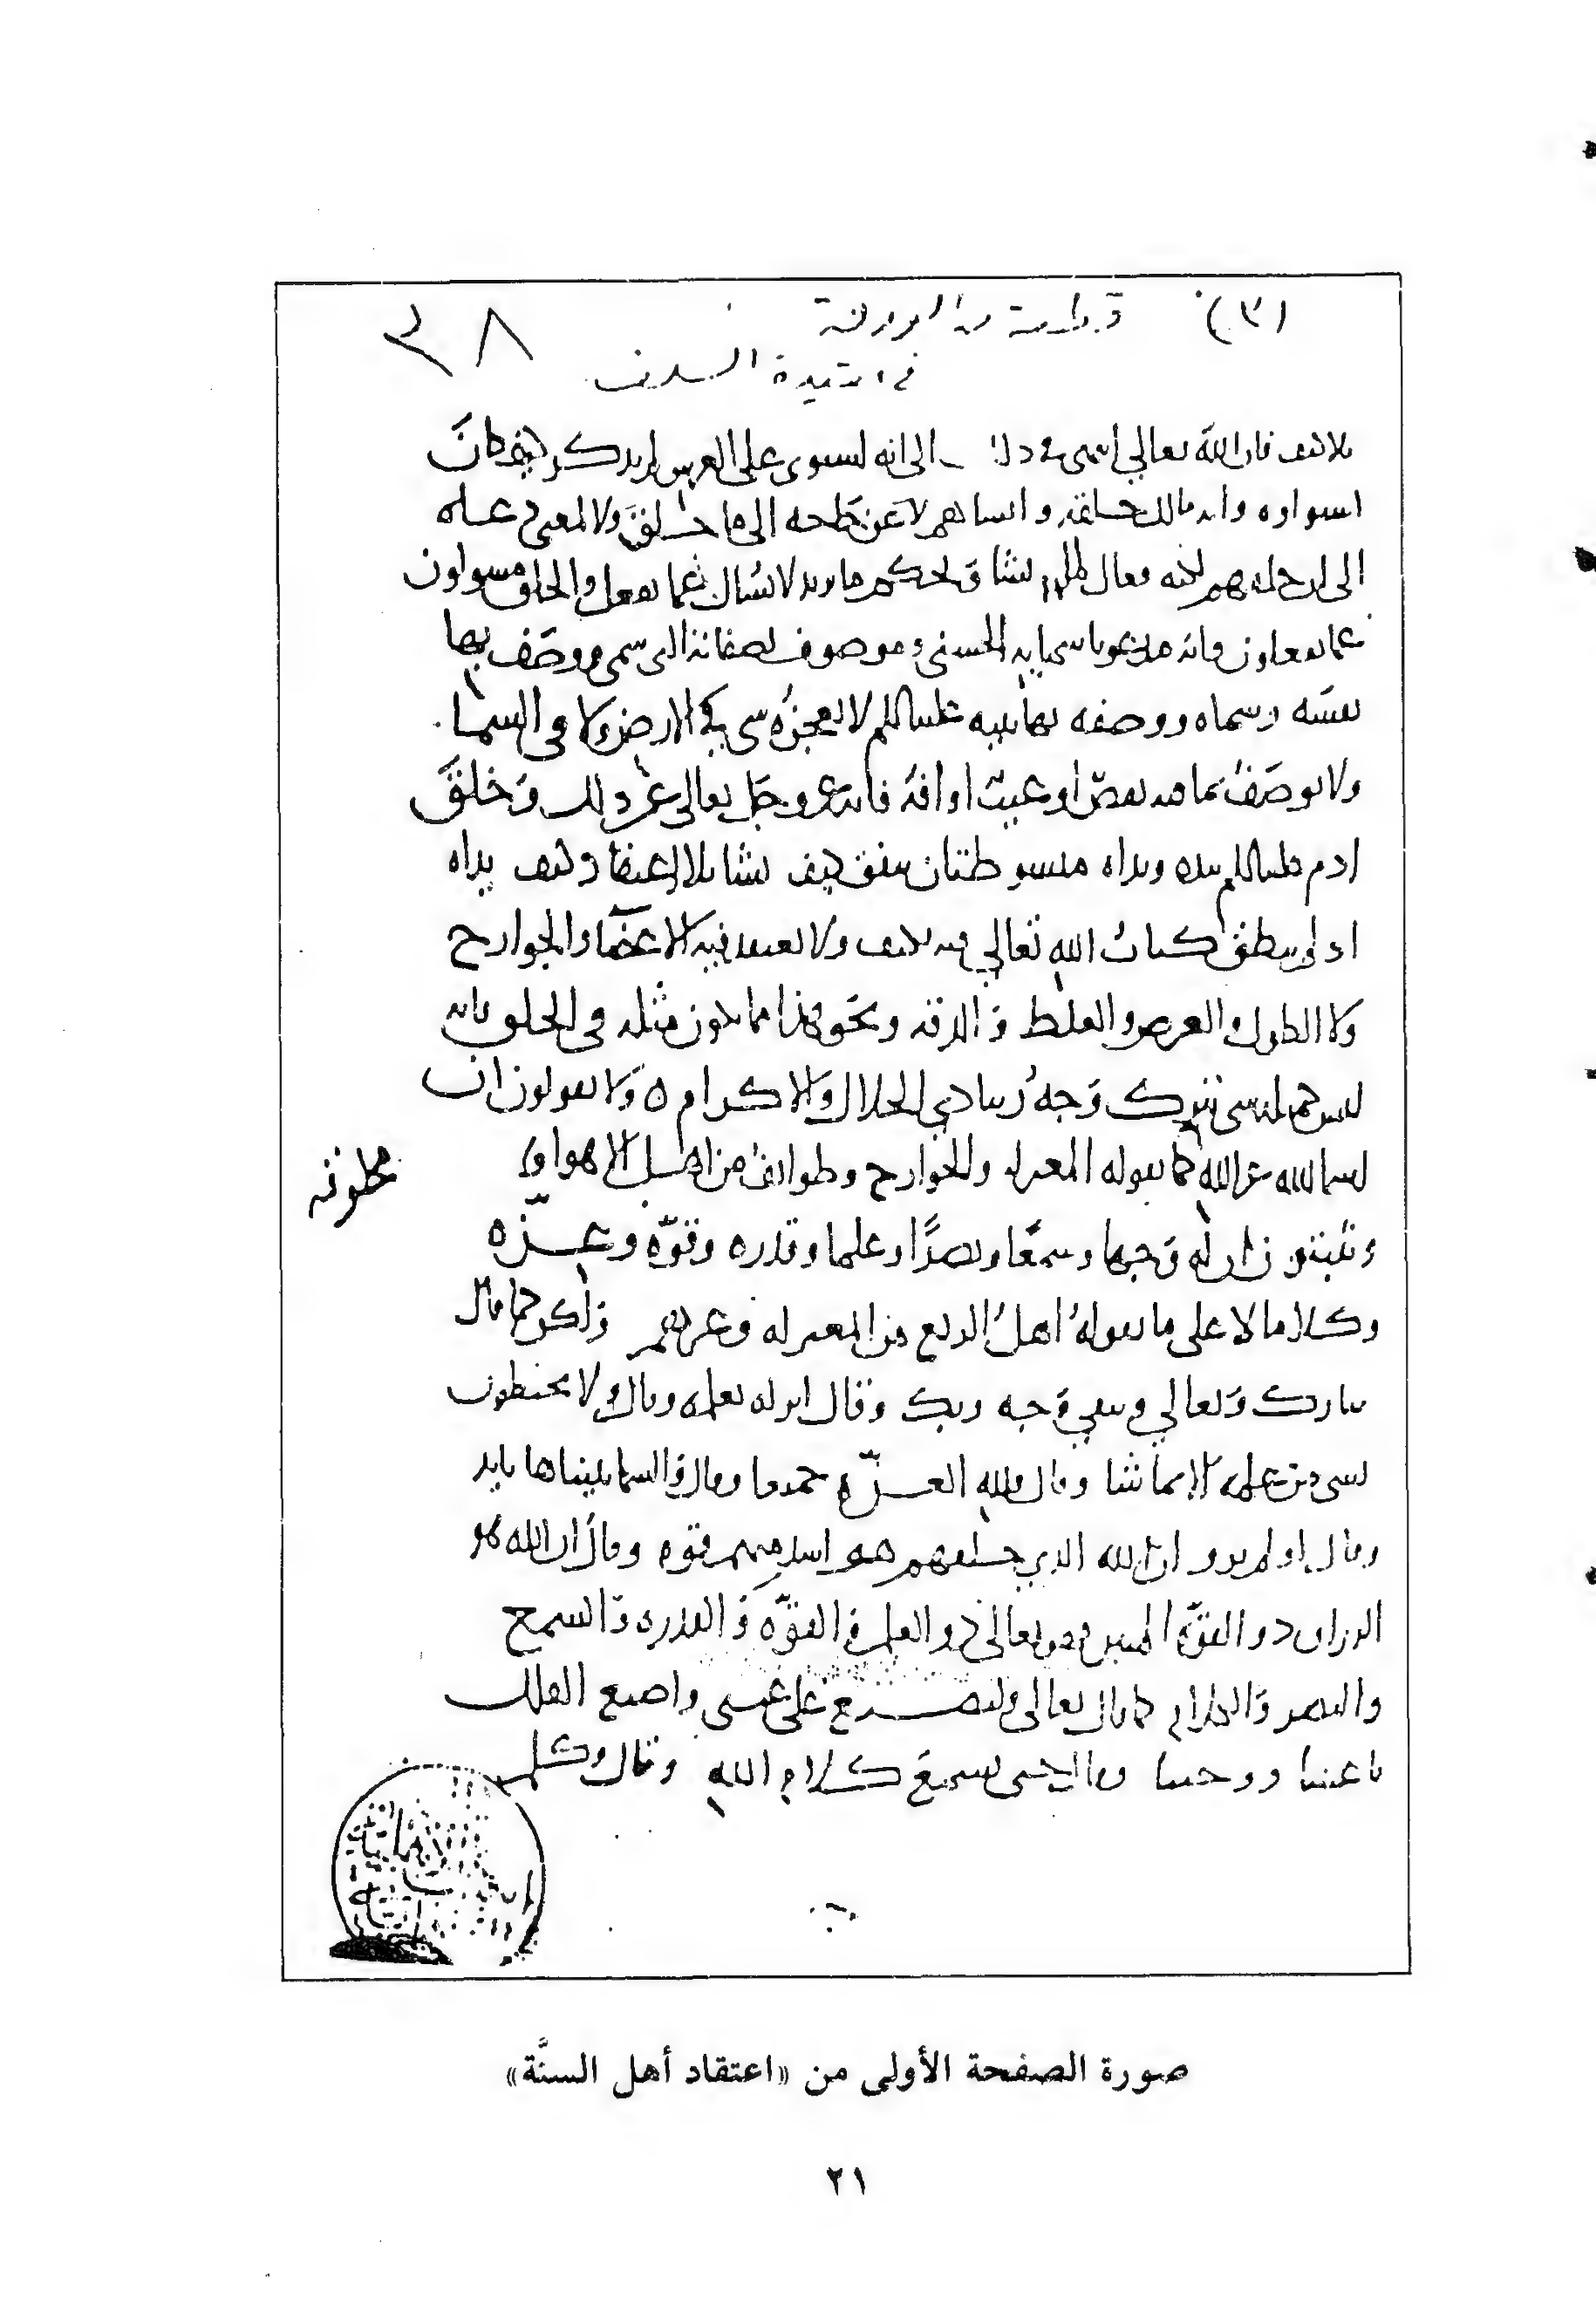 (٣) قطعة من الورقة
في عقيدة السلف
٣٨
بلا كيف فان الله تعالى انتهى في ذلك الى انه استوى على العرش ولم يذكر كيف كان
استواوه وانه مالك خلقه وانشاهم لا عن حاجه الى ما خلق ولا لمعنى دعاه
الى ان خلقهم لكنه فعال لما يشا ويحكم ما يريد لا يسال عما يفعل والخلق مسولون
عما يفعلون وانه مدعو باسمايه الحسنى وموصوف بصفاته التي سمى ووصف بها
نفسه وسماه ووصفه بها نبيه عليه السلم لا يعجزه شي في الارض ولا في السما
ولا يوصف بما فيه نقص او عيب او افة فانه عز وجل تعالى عن ذلك وخلق
ادم عليه السلم بيده ويداه مبسوطتان ينفق كيف يشا بلا اعتقاد كيف يداه
اذ لم ينطق كتاب الله تعالى فيه بكيف ولا يعتقد فيه الاعضا والجوارح
ولا الطول والعرض والغلظ والدقه ونحو هذا مما يكون مثله في الخلق فانه
ليس كمثله شي تبرك وجه ربنا ذي الجلال والاكرام ٥ ولا يقولون ان
اسما الله غير الله كما يقوله المعتزله والخوارج وطوايف من اهل الاهوا
مخلوقه
ويثبتون ان له وجها وسمعا وبصرا وعلما وقدره وقوّه وعزّه
وكلاما لا على ما يقوله اهل الزيغ من المعتزله وغيرهم ولكن كما قال
تبارك وتعالى ويبقى وجه ربك وقال انزله بعلمه وقال ولا يحيطون
بشي من علمه الا بما شا وقال فلله العزّه جميعا وقال والسما بنيناها بايد
وقال اولم يروا ان الله الذي خلقهم هو اشد منهم قوه وقال ان الله هو
الرزاق ذو القوّه المتين فهو تعالى ذو العلم والقوّه والقدره والسمع
والبصر والكلام كما قال تعالى ولتصنع على عيني واصنع الفلك
باعيننا ووحينا وقال حتى يسمع كلام الله وقال وكلم
صورة الصفحة الأولى من «اعتقاد أهل السنَّة»
٢١